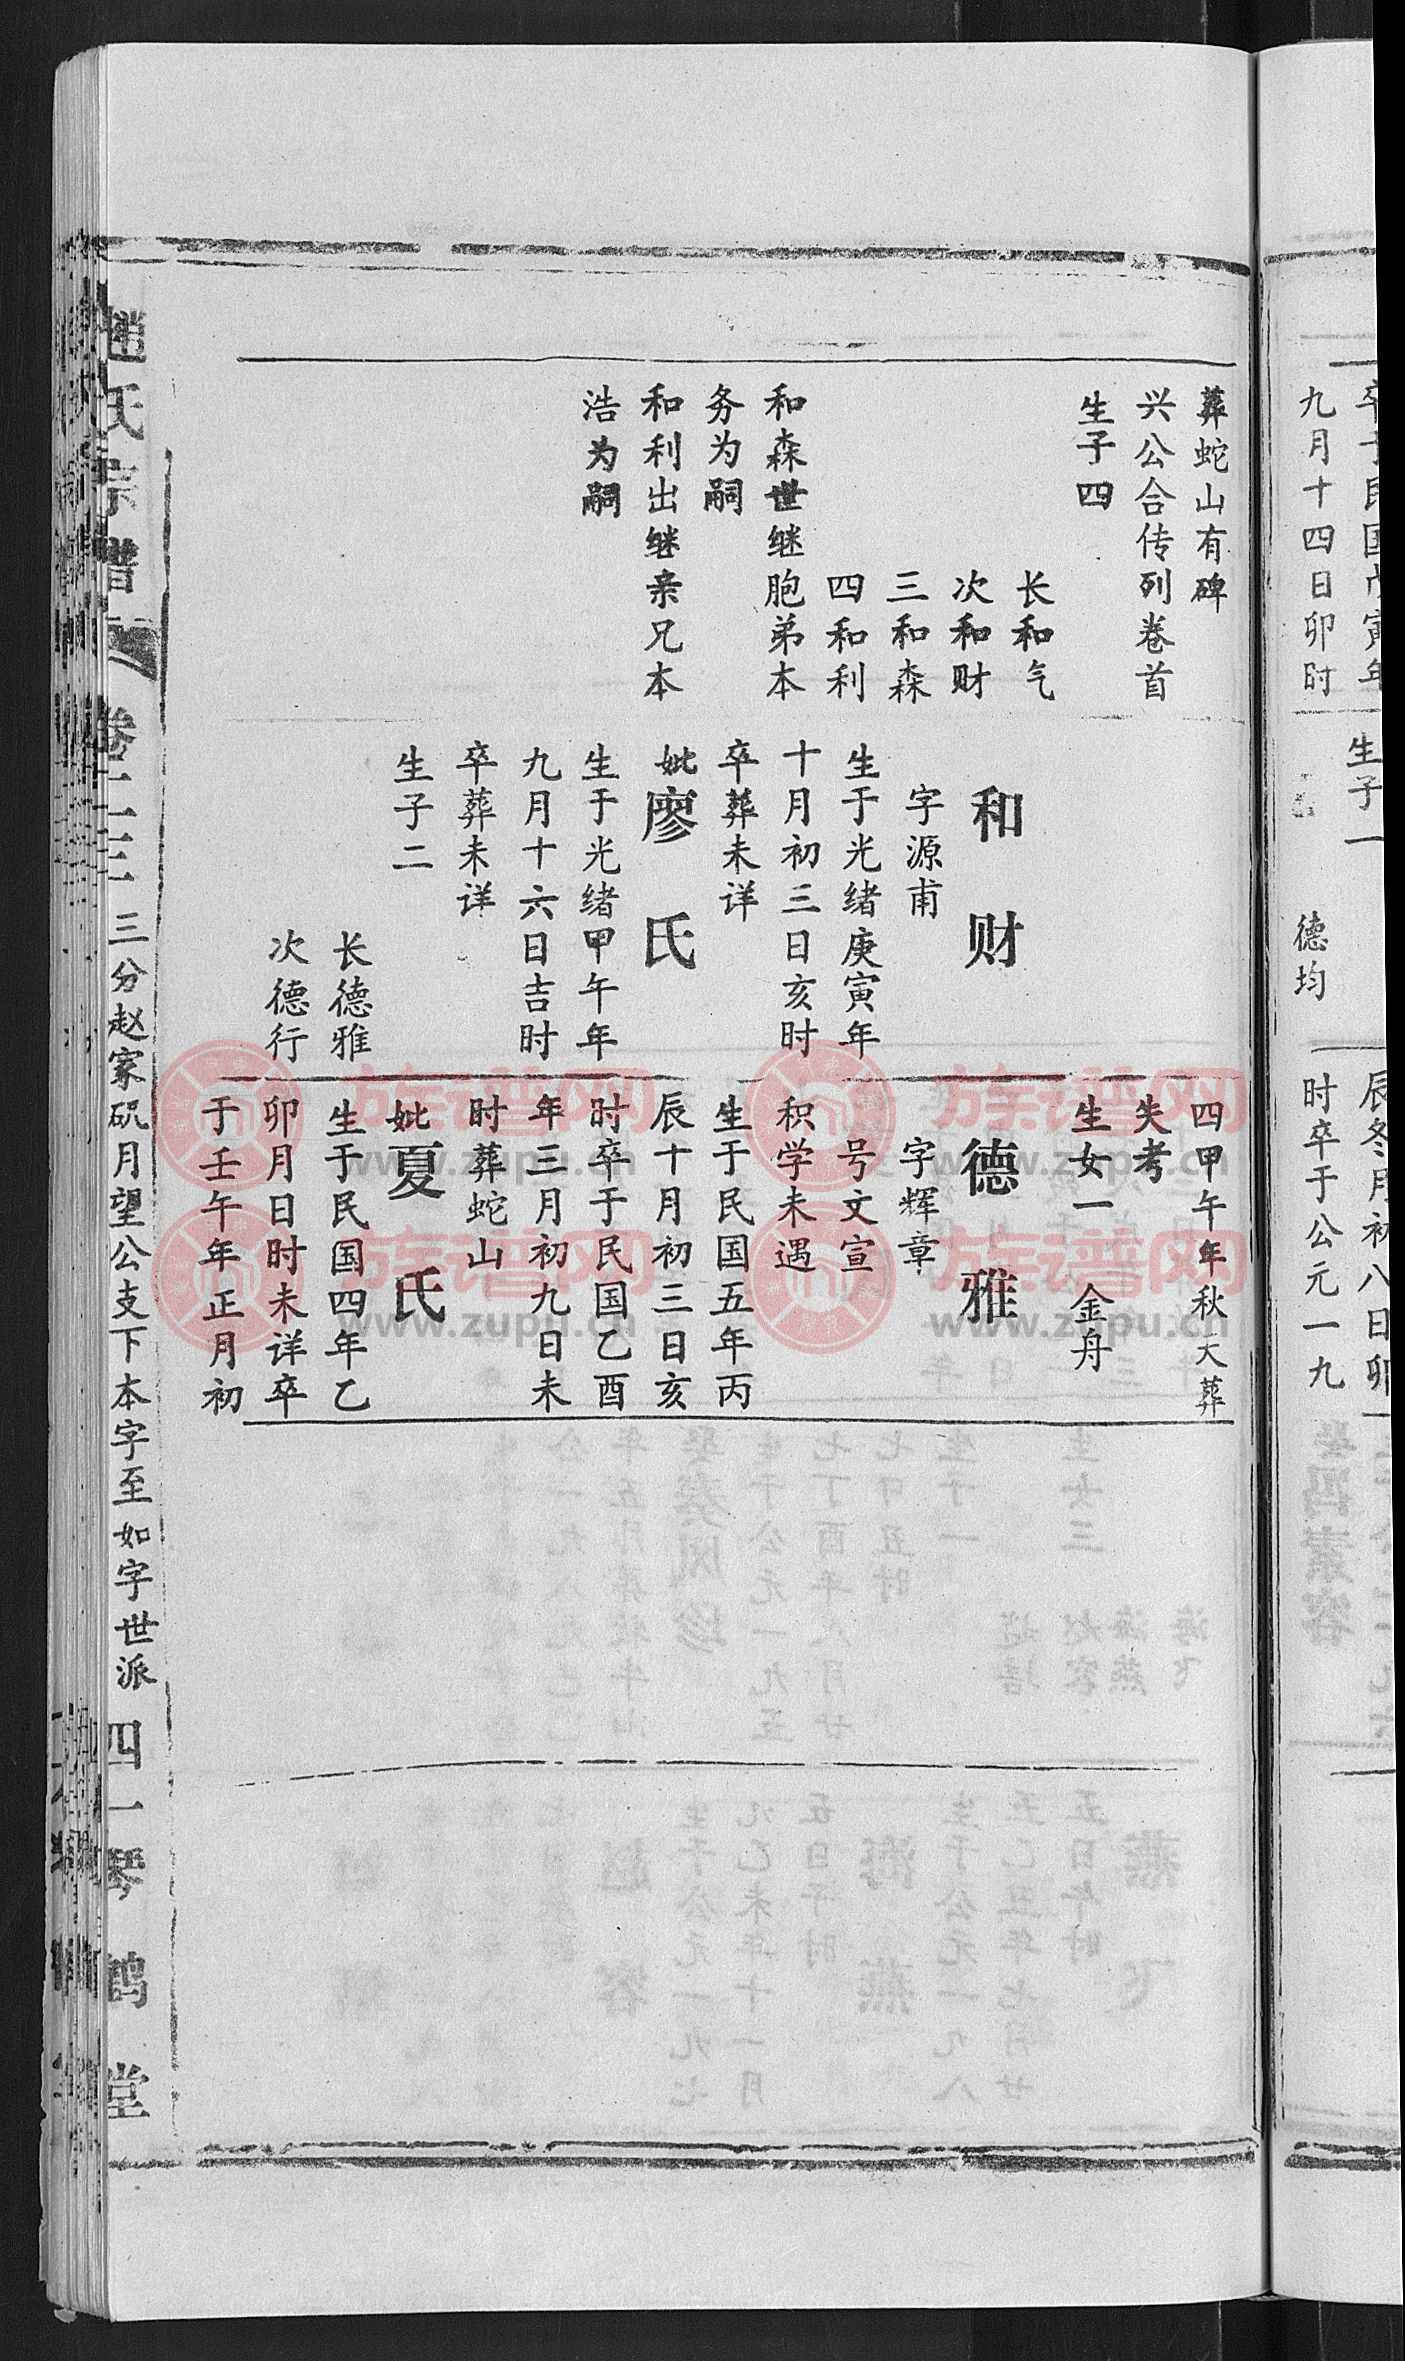 卒于民国戊寅年
九月十四日卯时
生子一
德均
辰冬月初八日卯
时卒于公元一九
葬蛇山有碑
兴公合传列卷首
生子四
长和气
次和财
三和森
四和利
和森世继胞弟本
务为嗣
和利出继亲兄本
浩为嗣
和财
字源甫
生于光绪庚寅年
十月初三日亥时
卒葬未详
妣廖氏
生于光绪甲午年
九月十六日吉时
卒葬未详
生子二
长德雅
次德行
四甲午年秋天葬
失考
生女一 金舟
德雅
字辉章
号文宣
积学未遇
生于民国五年丙
辰十月初三日亥
时卒于民国乙酉
年三月初九日未
时葬蛇山
妣夏氏
生于民国四年乙
卯月日时未详卒
于壬午年正月初
趙氏宗譜 卷二三 三分赵家砚月望公支下本字至如字世派 四一 琴鹤堂
族谱网
www.zupu.cn
族谱网
www.zupu.cn
族谱网
www.zupu.cn
族谱网
www.zupu.cn